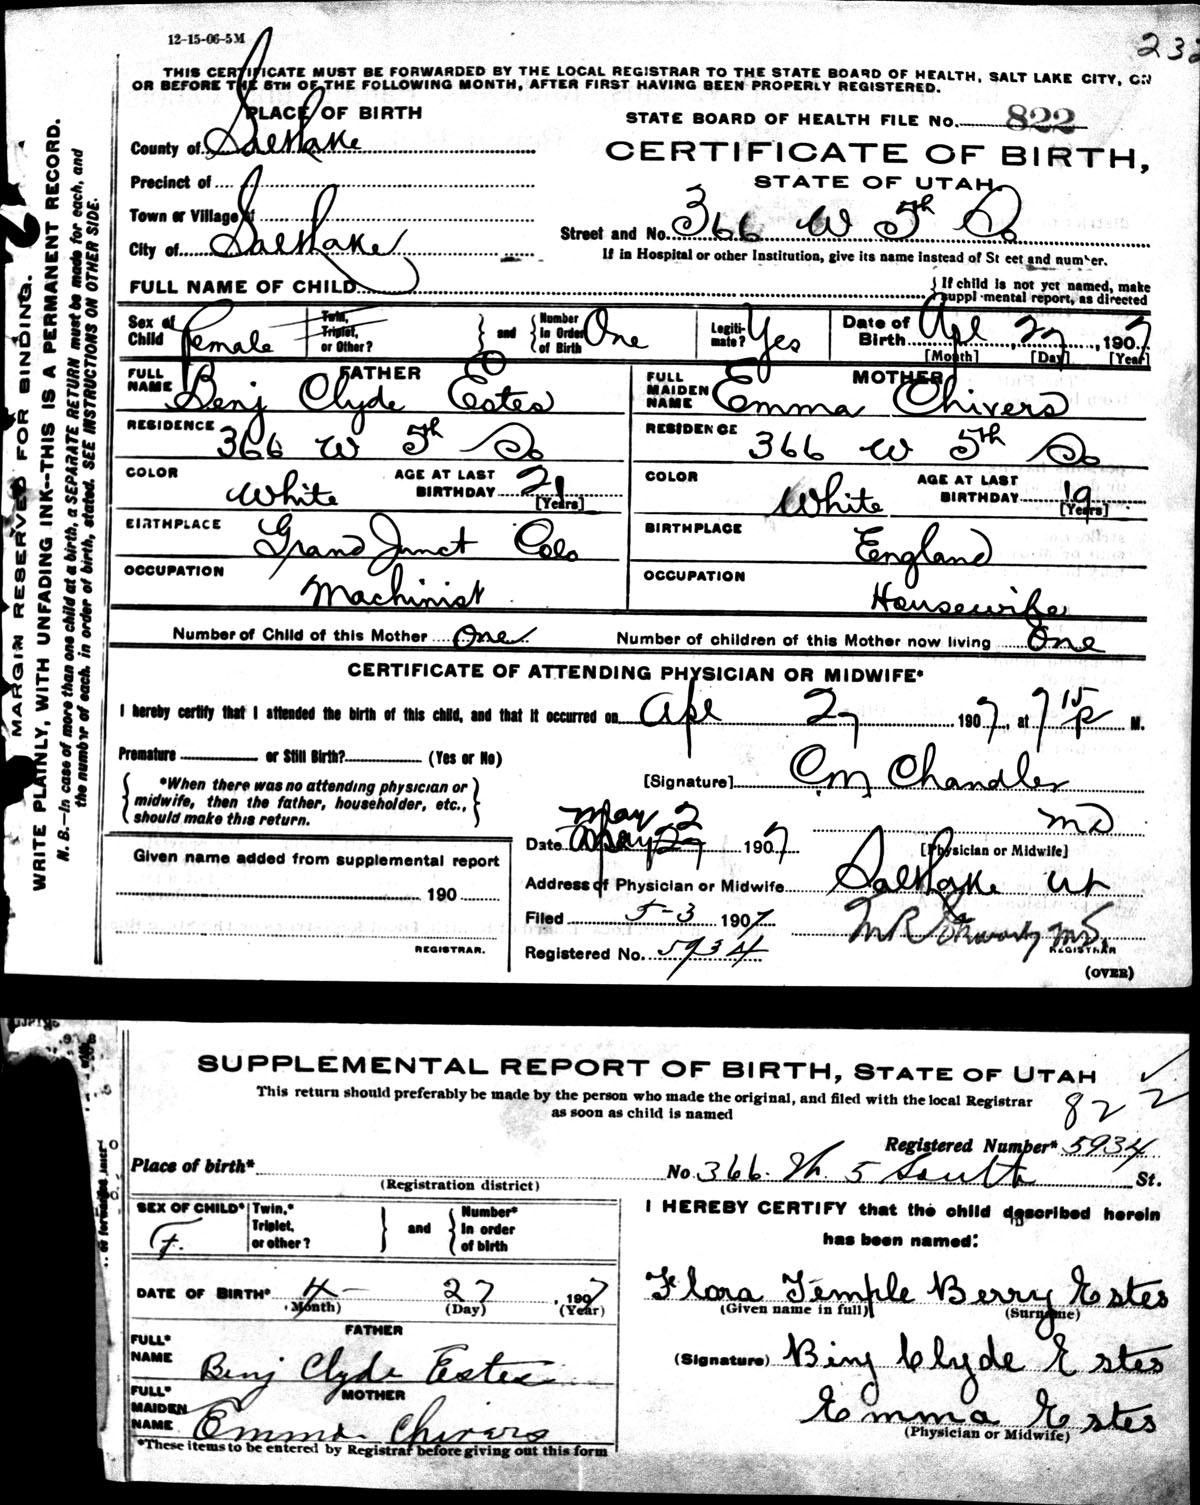 12-15-06-5M
THIS CERTIFICATE MUST BE FORWARDED BY THE LOCAL REGISTRAR TO THE STATE BOARD OF HEALTH, SALT LAKE CITY, ON
OR BEFORE THE 5TH OF THE FOLLOWING MONTH, AFTER FIRST HAVING BEEN PROPERLY REGISTERED.
PLACE OF BIRTH
STATE BOARD OF HEALTH FILE No. 822
County of Salt Lake
CERTIFICATE OF BIRTH,
Precinct of
STATE OF UTAH
Town or Village of
Street and No. 366 W 5th So
City of Salt Lake
If in Hospital or other Institution, give its name instead of Street and number.
FULL NAME OF CHILD
If child is not yet named, make
supplemental report, as directed
Sex of Child Female
Twin, Triplet, or Other?
and
Number in Order of Birth One
Legitimate? Yes
Date of Birth Apl 27, 1907
[Month] [Day] [Year]
FATHER
FULL NAME Benj Clyde Estes
RESIDENCE 366 W 5th So
COLOR White
AGE AT LAST BIRTHDAY 21 [Years]
BIRTHPLACE Grand Junct Colo
OCCUPATION Machinist
MOTHER
FULL MAIDEN NAME Emma Chivers
RESIDENCE 366 W 5th So
COLOR White
AGE AT LAST BIRTHDAY 19 [Years]
BIRTHPLACE England
OCCUPATION Housewife
Number of Child of this Mother One
Number of children of this Mother now living One
CERTIFICATE OF ATTENDING PHYSICIAN OR MIDWIFE*
I hereby certify that I attended the birth of this child, and that it occurred on Apl 27 1907, at 7 15 P M.
Premature or Still Birth? (Yes or No)
*When there was no attending physician or
midwife, then the father, householder, etc.,
should make this return.
[Signature] CM Chandler
MD
[Physician or Midwife]
May 2
Date 1907
Address of Physician or Midwife Salt Lake Ut
Filed 5-3 1907
Registered No. 5934
MD.
REGISTRAR
(OVER)
Given name added from supplemental report
190
REGISTRAR.
MARGIN RESERVED FOR BINDING.
WRITE PLAINLY, WITH UNFADING INK--THIS IS A PERMANENT RECORD.
N. B.--In case of more than one child at a birth, a SEPARATE RETURN must be made for each, and
the number of each, in order of birth, stated. SEE INSTRUCTIONS ON OTHER SIDE.
SUPPLEMENTAL REPORT OF BIRTH, STATE OF UTAH
This return should preferably be made by the person who made the original, and filed with the local Registrar
as soon as child is named
822
Registered Number* 5934
Place of birth*
(Registration district)
No. 366. W. 5 South St.
SEX OF CHILD* F.
Twin,* Triplet, or other?
and
Number* in order of birth
I HEREBY CERTIFY that the child described herein
has been named:
DATE OF BIRTH* 4- 27, 1907
(Month) (Day) (Year)
Flora Temple Berry Estes
(Given name in full) (Surname)
FATHER
FULL* NAME Benj Clyde Estes
(Signature) Binj Clyde Estes
MOTHER
FULL* MAIDEN NAME Emma Chivers
Emma Estes
(Physician or Midwife)
*These items to be entered by Registrar before giving out this form